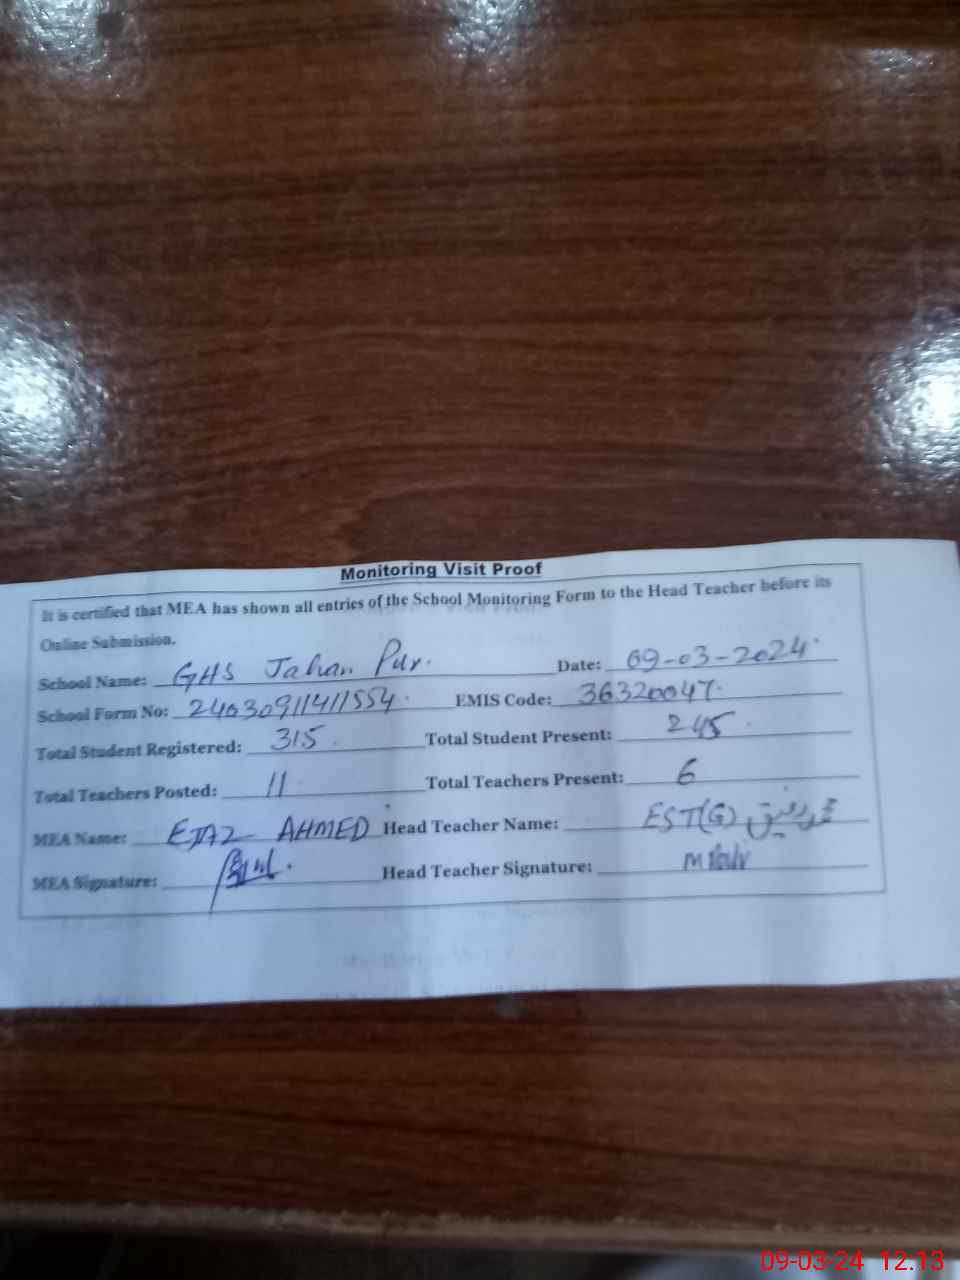 Monitoring Visit Proof
It is certified that MEA has shown all entries of the School Monitoring Form to the Head Teacher before its
Online Submission.
School Name: GHS Jahan Pur. Date: 09-03-2024
School Form No: 24030911411554 EMIS Code: 36320047
Total Student Registered: 315 Total Student Present: 245
Total Teachers Posted: 11 Total Teachers Present: 6
MEA Name: EJAZ AHMED Head Teacher Name: EST(G) محمد رفیق
MEA Signature: Head Teacher Signature:
09-03-24 12:13